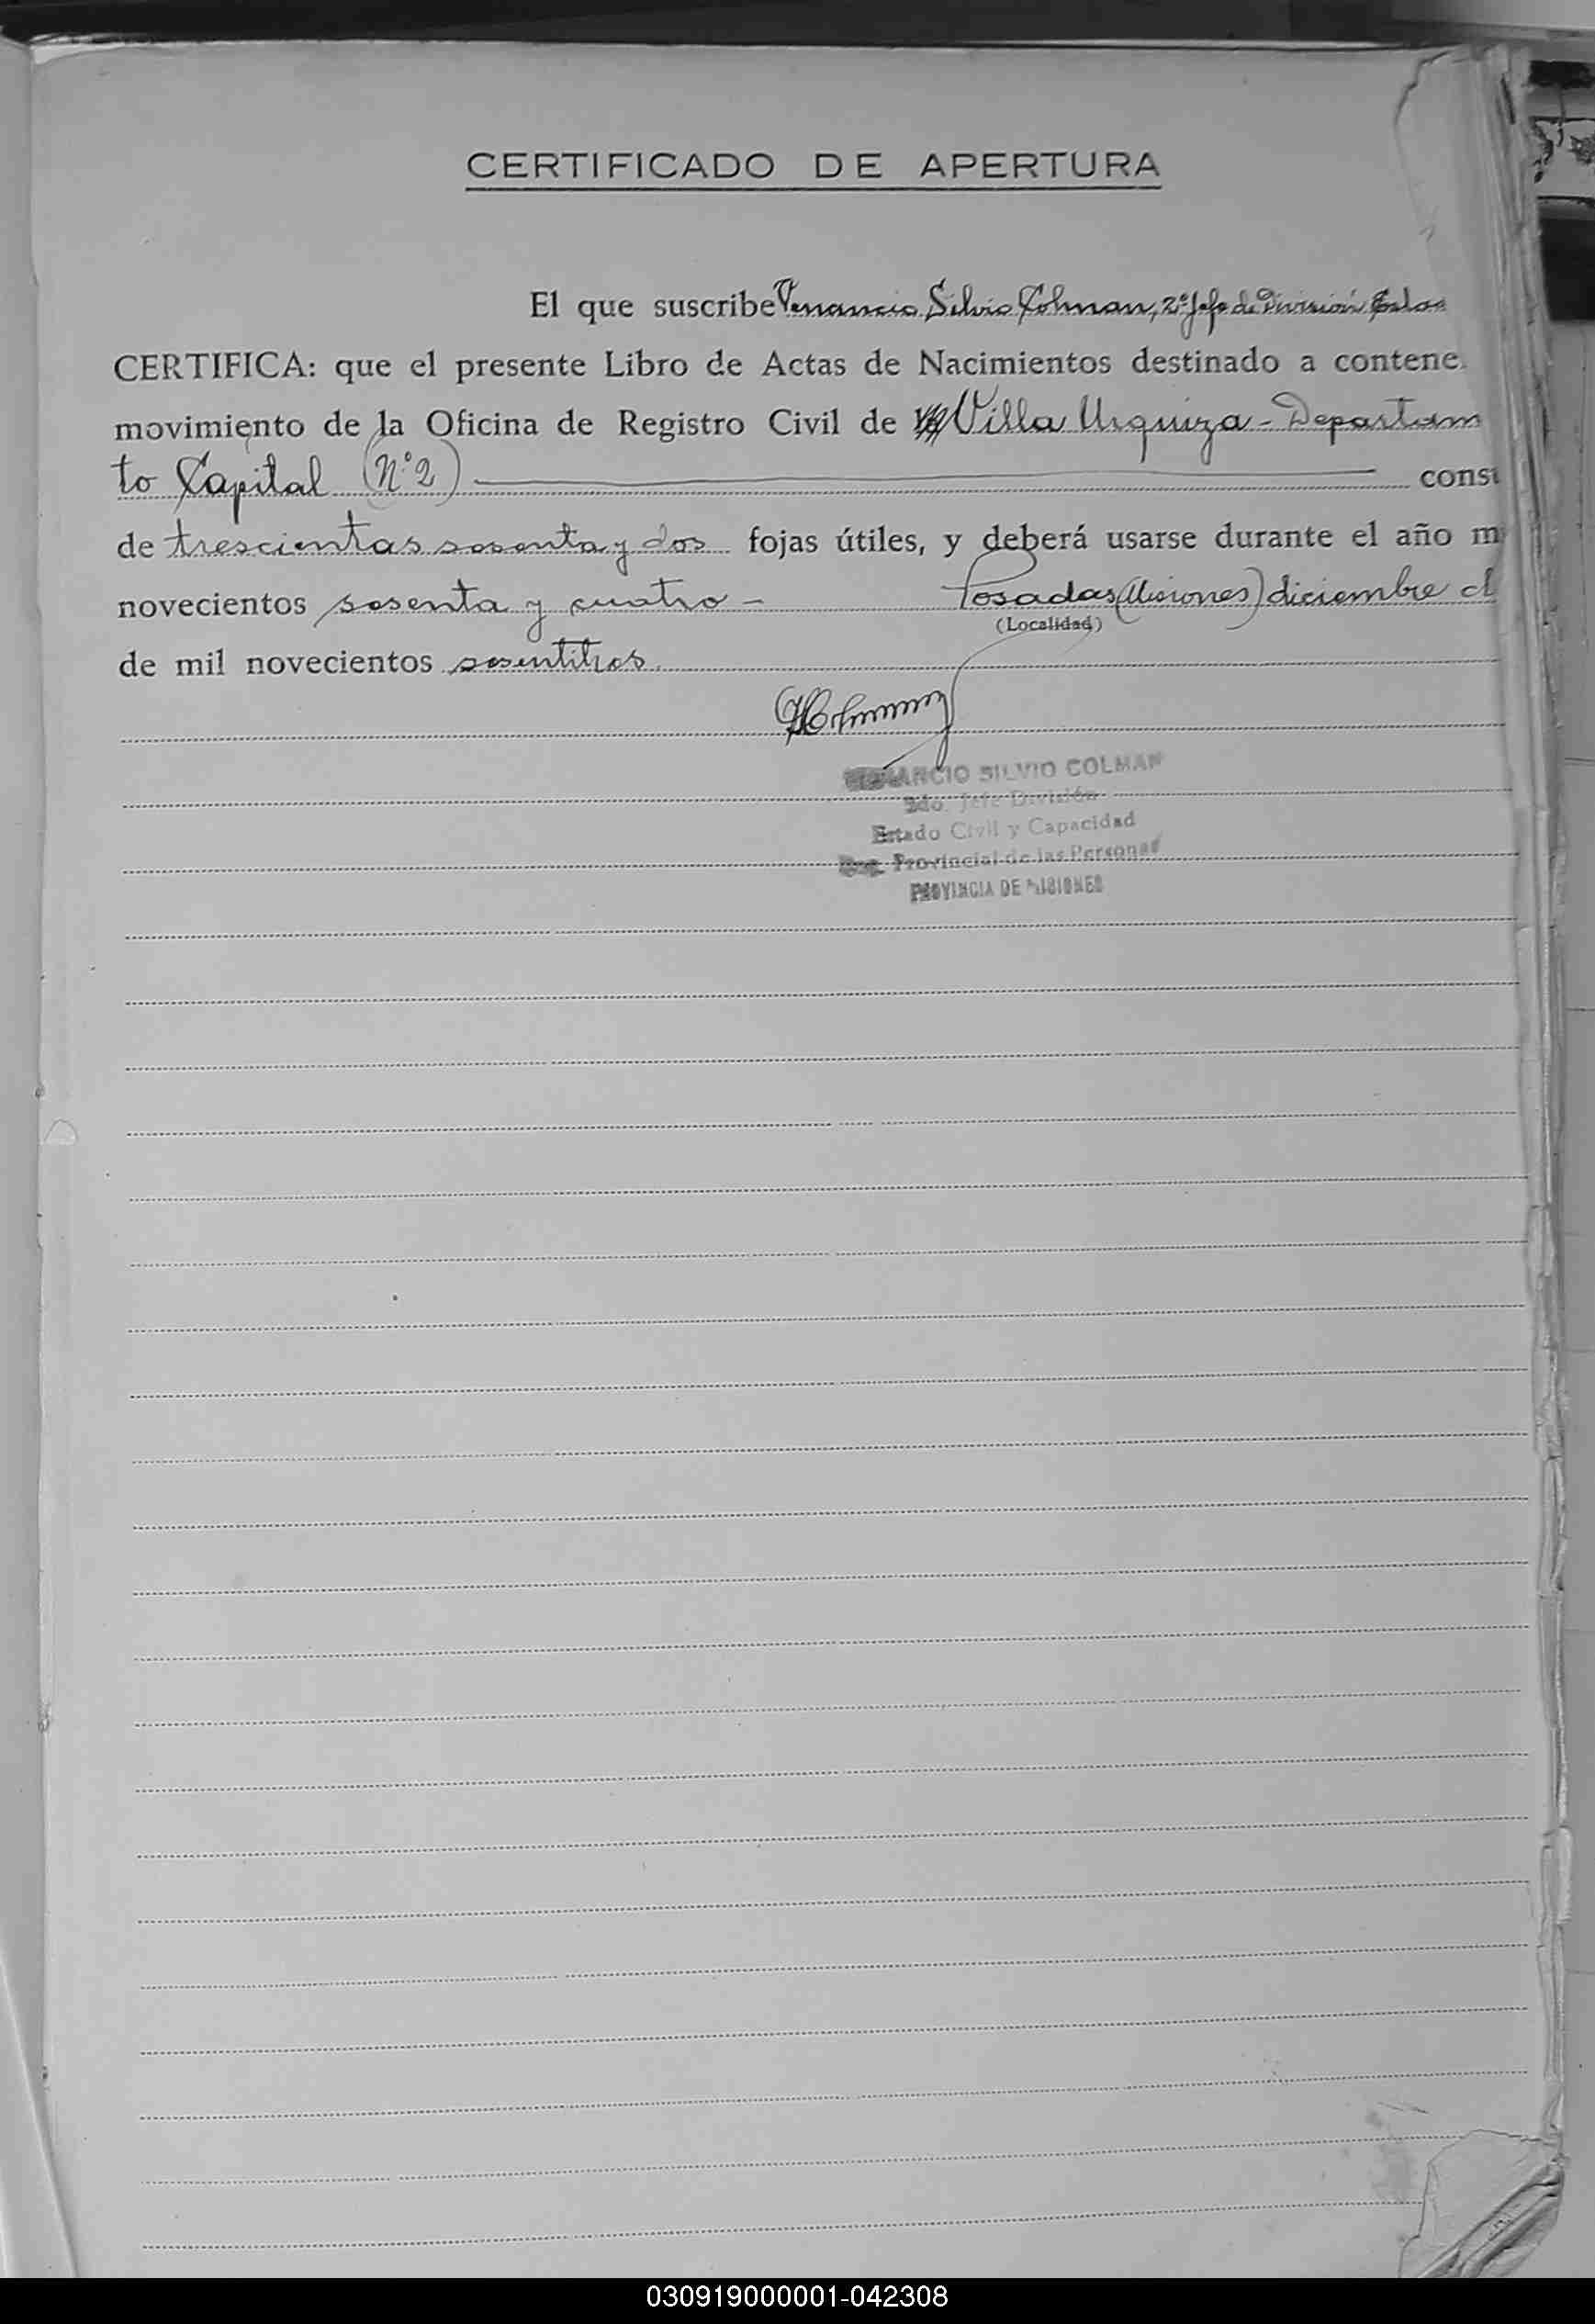 CERTIFICADO DE APERTURA
El que suscribe Venancio Silvio Colman, 2º Jefe de División
CERTIFICA: que el presente Libro de Actas de Nacimientos destinado a contene
movimiento de la Oficina de Registro Civil de Villa Urquiza - Departam
to Capital (Nº 2) const
de trescientas sesenta y dos fojas útiles, y deberá usarse durante el año m
novecientos sesenta y cuatro - Posadas (Misiones) diciembre d
(Localidad)
de mil novecientos sesentitres.
VENANCIO SILVIO COLMAN
2do. Jefe División
Estado Civil y Capacidad
Reg. Provincial de las Personas
PROVINCIA DE MISIONES
030919000001-042308